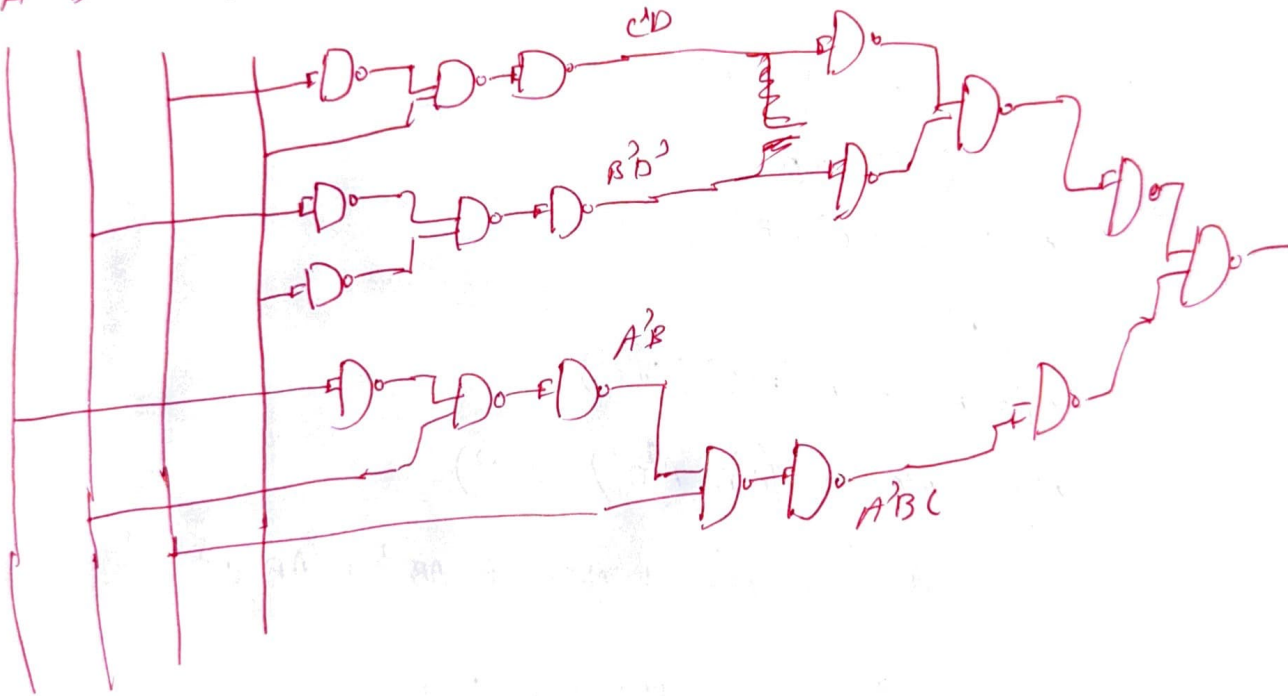 C'D
B'D'
A'B
A'BC